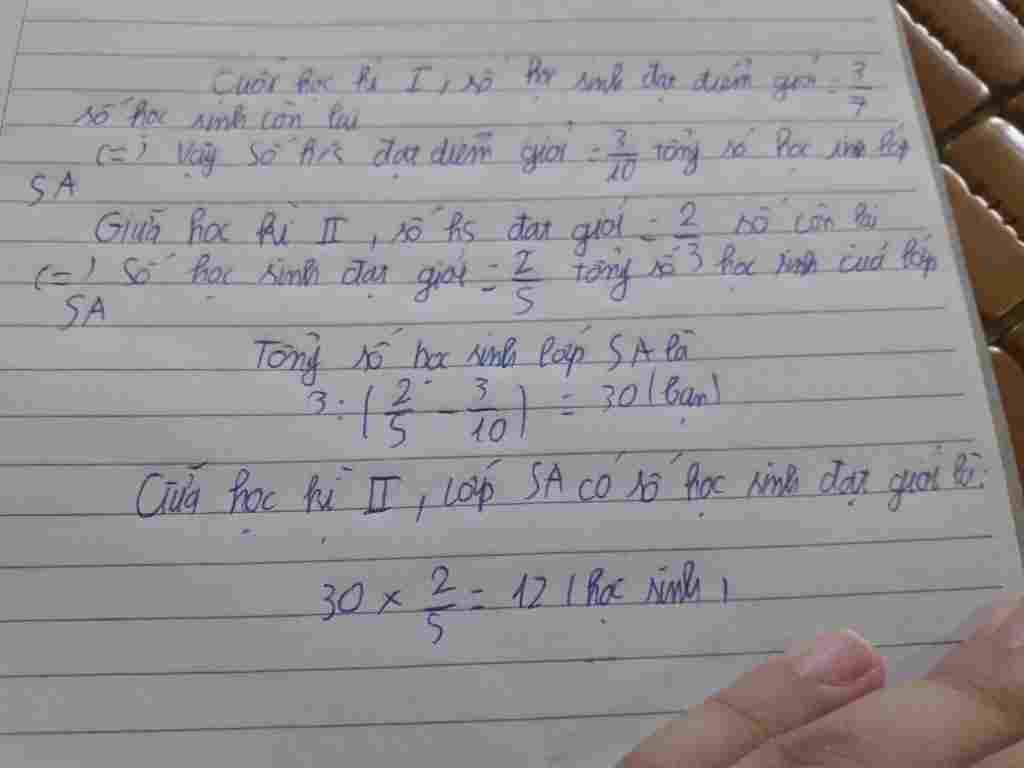 Cuối học kì I, số học sinh đạt điểm giỏi = 3/7
số học sinh còn lại
(=) Vậy số h/s đạt điểm giỏi = 3/10 tổng số học sinh lớp
5A
Giữa học kì II, số hs đạt giỏi = 2/3 số còn lại
(=) Số học sinh đạt giỏi = 2/5 tổng số học sinh của lớp
5A
Tổng số học sinh lớp 5A là
3 : (2/5 - 3/10) = 30 (bạn)
Giữa học kì II, lớp 5A có số học sinh đạt giỏi là:
30 × 2/5 = 12 (học sinh)